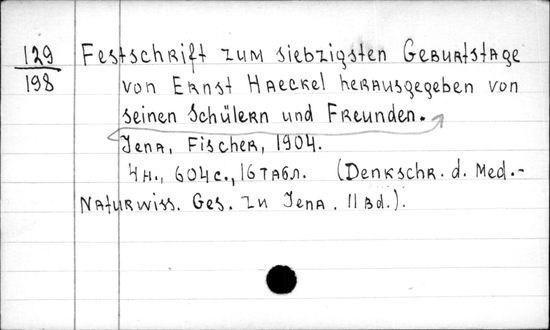 129
198
Festschrift zum siebzigsten Geburtstage
von Ernst Haeckel herausgegeben von
seinen Schülern und Freunden.
Jena, Fischer, 1904.
4н., 604с., 16 табл. (Denkschr. d. Med.-
Naturwiss. Ges. zu Jena. 11 Bd.).